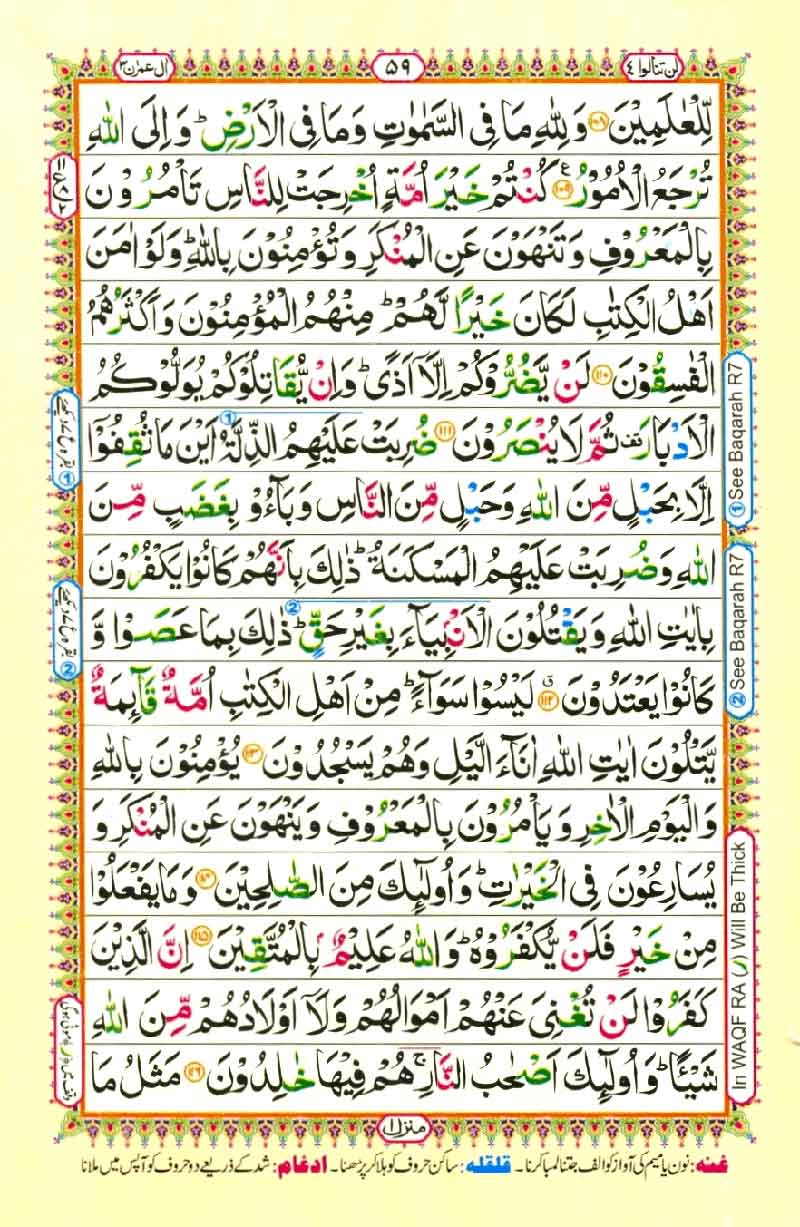 لن تنالوا ٤
٥٩
اٰل عمرٰن ٣
لِّلْعٰلَمِيْنَ ۝١٠٨ وَلِلّٰهِ مَا فِى السَّمٰوٰتِ وَمَا فِى الْاَرْضِ ؕ وَ اِلَى اللّٰهِ
تُرْجَعُ الْاُمُوْرُ ۝١٠٩ كُنْتُمْ خَيْرَ اُمَّةٍ اُخْرِجَتْ لِلنَّاسِ تَاْمُرُوْنَ
بِالْمَعْرُوْفِ وَ تَنْهَوْنَ عَنِ الْمُنْكَرِ وَ تُؤْمِنُوْنَ بِاللّٰهِ ؕ وَلَوْ اٰمَنَ
اَهْلُ الْكِتٰبِ لَكَانَ خَيْرًا لَّهُمْ ؕ مِنْهُمُ الْمُؤْمِنُوْنَ وَ اَكْثَرُهُمُ
الْفٰسِقُوْنَ ۝١١٠ لَنْ يَّضُرُّوْكُمْ اِلَّاۤ اَذًى ؕ وَ اِنْ يُّقَاتِلُوْكُمْ يُوَلُّوْكُمُ
الْاَدْبَارَ ثُمَّ لَا يُنْصَرُوْنَ ۝١١١ ضُرِبَتْ عَلَيْهِمُ الذِّلَّةُ اَيْنَ مَا ثُقِفُوْۤا
اِلَّا بِحَبْلٍ مِّنَ اللّٰهِ وَحَبْلٍ مِّنَ النَّاسِ وَ بَآءُوْ بِغَضَبٍ مِّنَ
اللّٰهِ وَ ضُرِبَتْ عَلَيْهِمُ الْمَسْكَنَةُ ؕ ذٰلِكَ بِاَنَّهُمْ كَانُوْا يَكْفُرُوْنَ
بِاٰيٰتِ اللّٰهِ وَ يَقْتُلُوْنَ الْاَنْۢبِيَآءَ بِغَيْرِ حَقٍّ ؕ ذٰلِكَ بِمَا عَصَوْا وَّ
كَانُوْا يَعْتَدُوْنَ ۝١١٢ لَيْسُوْا سَوَآءً ؕ مِنْ اَهْلِ الْكِتٰبِ اُمَّةٌ قَآئِمَةٌ
يَّتْلُوْنَ اٰيٰتِ اللّٰهِ اٰنَآءَ الَّيْلِ وَهُمْ يَسْجُدُوْنَ ۝١١٣ يُؤْمِنُوْنَ بِاللّٰهِ
وَ الْيَوْمِ الْاٰخِرِ وَ يَاْمُرُوْنَ بِالْمَعْرُوْفِ وَ يَنْهَوْنَ عَنِ الْمُنْكَرِ وَ
يُسَارِعُوْنَ فِى الْخَيْرٰتِ ؕ وَ اُولٰٓئِكَ مِنَ الصّٰلِحِيْنَ ۝١١٤ وَمَا يَفْعَلُوْا
مِنْ خَيْرٍ فَلَنْ يُّكْفَرُوْهُ ؕ وَاللّٰهُ عَلِيْمٌۢ بِالْمُتَّقِيْنَ ۝١١٥ اِنَّ الَّذِيْنَ
كَفَرُوْا لَنْ تُغْنِىَ عَنْهُمْ اَمْوَالُهُمْ وَلَاۤ اَوْلَادُهُمْ مِّنَ اللّٰهِ
شَيْـًٔا ؕ وَ اُولٰٓئِكَ اَصْحٰبُ النَّارِ ۚ هُمْ فِيْهَا خٰلِدُوْنَ ۝١١٦ مَثَلُ مَا
① See Baqarah R7
② See Baqarah R7
In WAQF RA (ر) Will Be Thick
منزل ١
غنہ: نون یا میم کی آواز کو الف جتنا لمبا کرنا۔ قلقلہ: ساکن حروف کو ہلا کر پڑھنا۔ ادغام: شد کے ذریعے دو حروف کو آپس میں ملانا